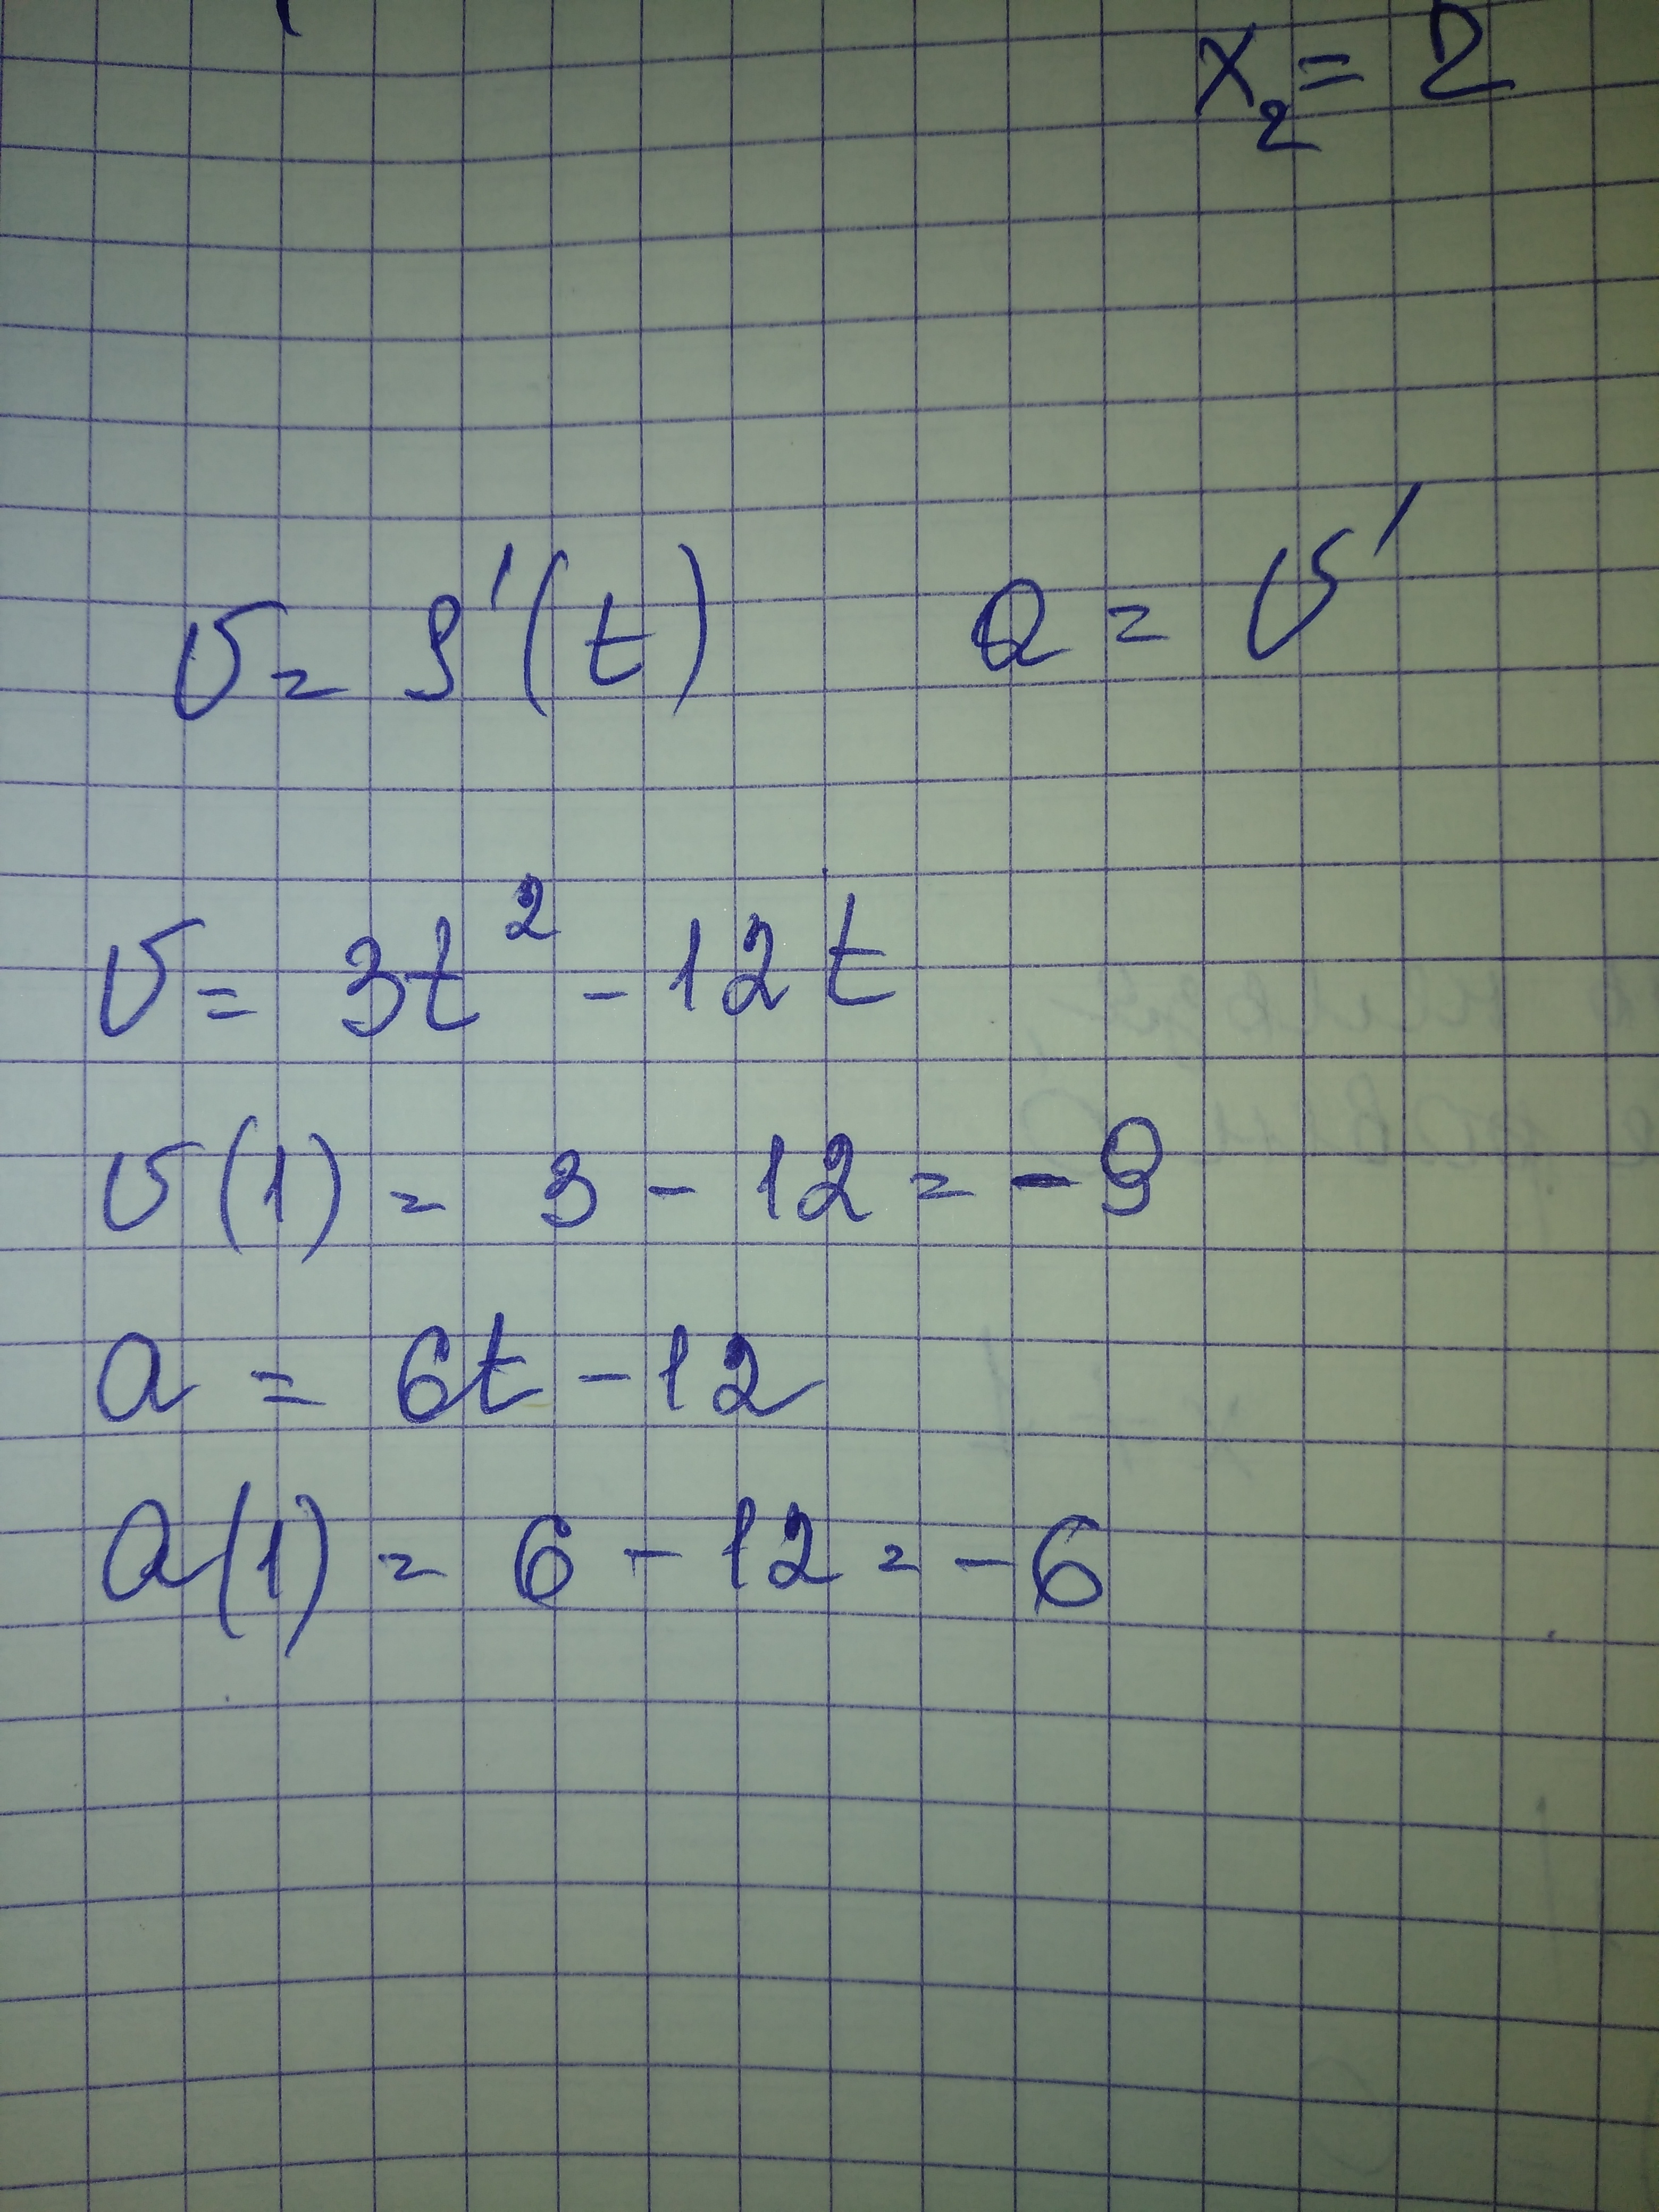 x₂ = 2
v = S'(t) a = v'
v = 3t² - 12t
v(1) = 3 - 12 = -9
a = 6t - 12
a(1) = 6 - 12 = -6